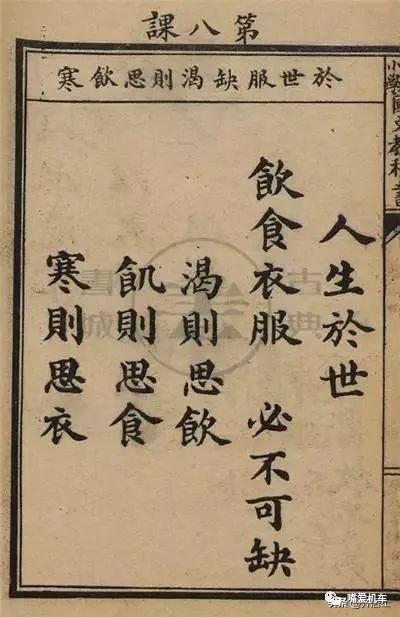 第八課
於世服缺渴則思飲寒
人生於世
飲食衣服 必不可缺
渴則思飲
飢則思食
寒則思衣
小學國文教科書
古典書城
嘴爱机车